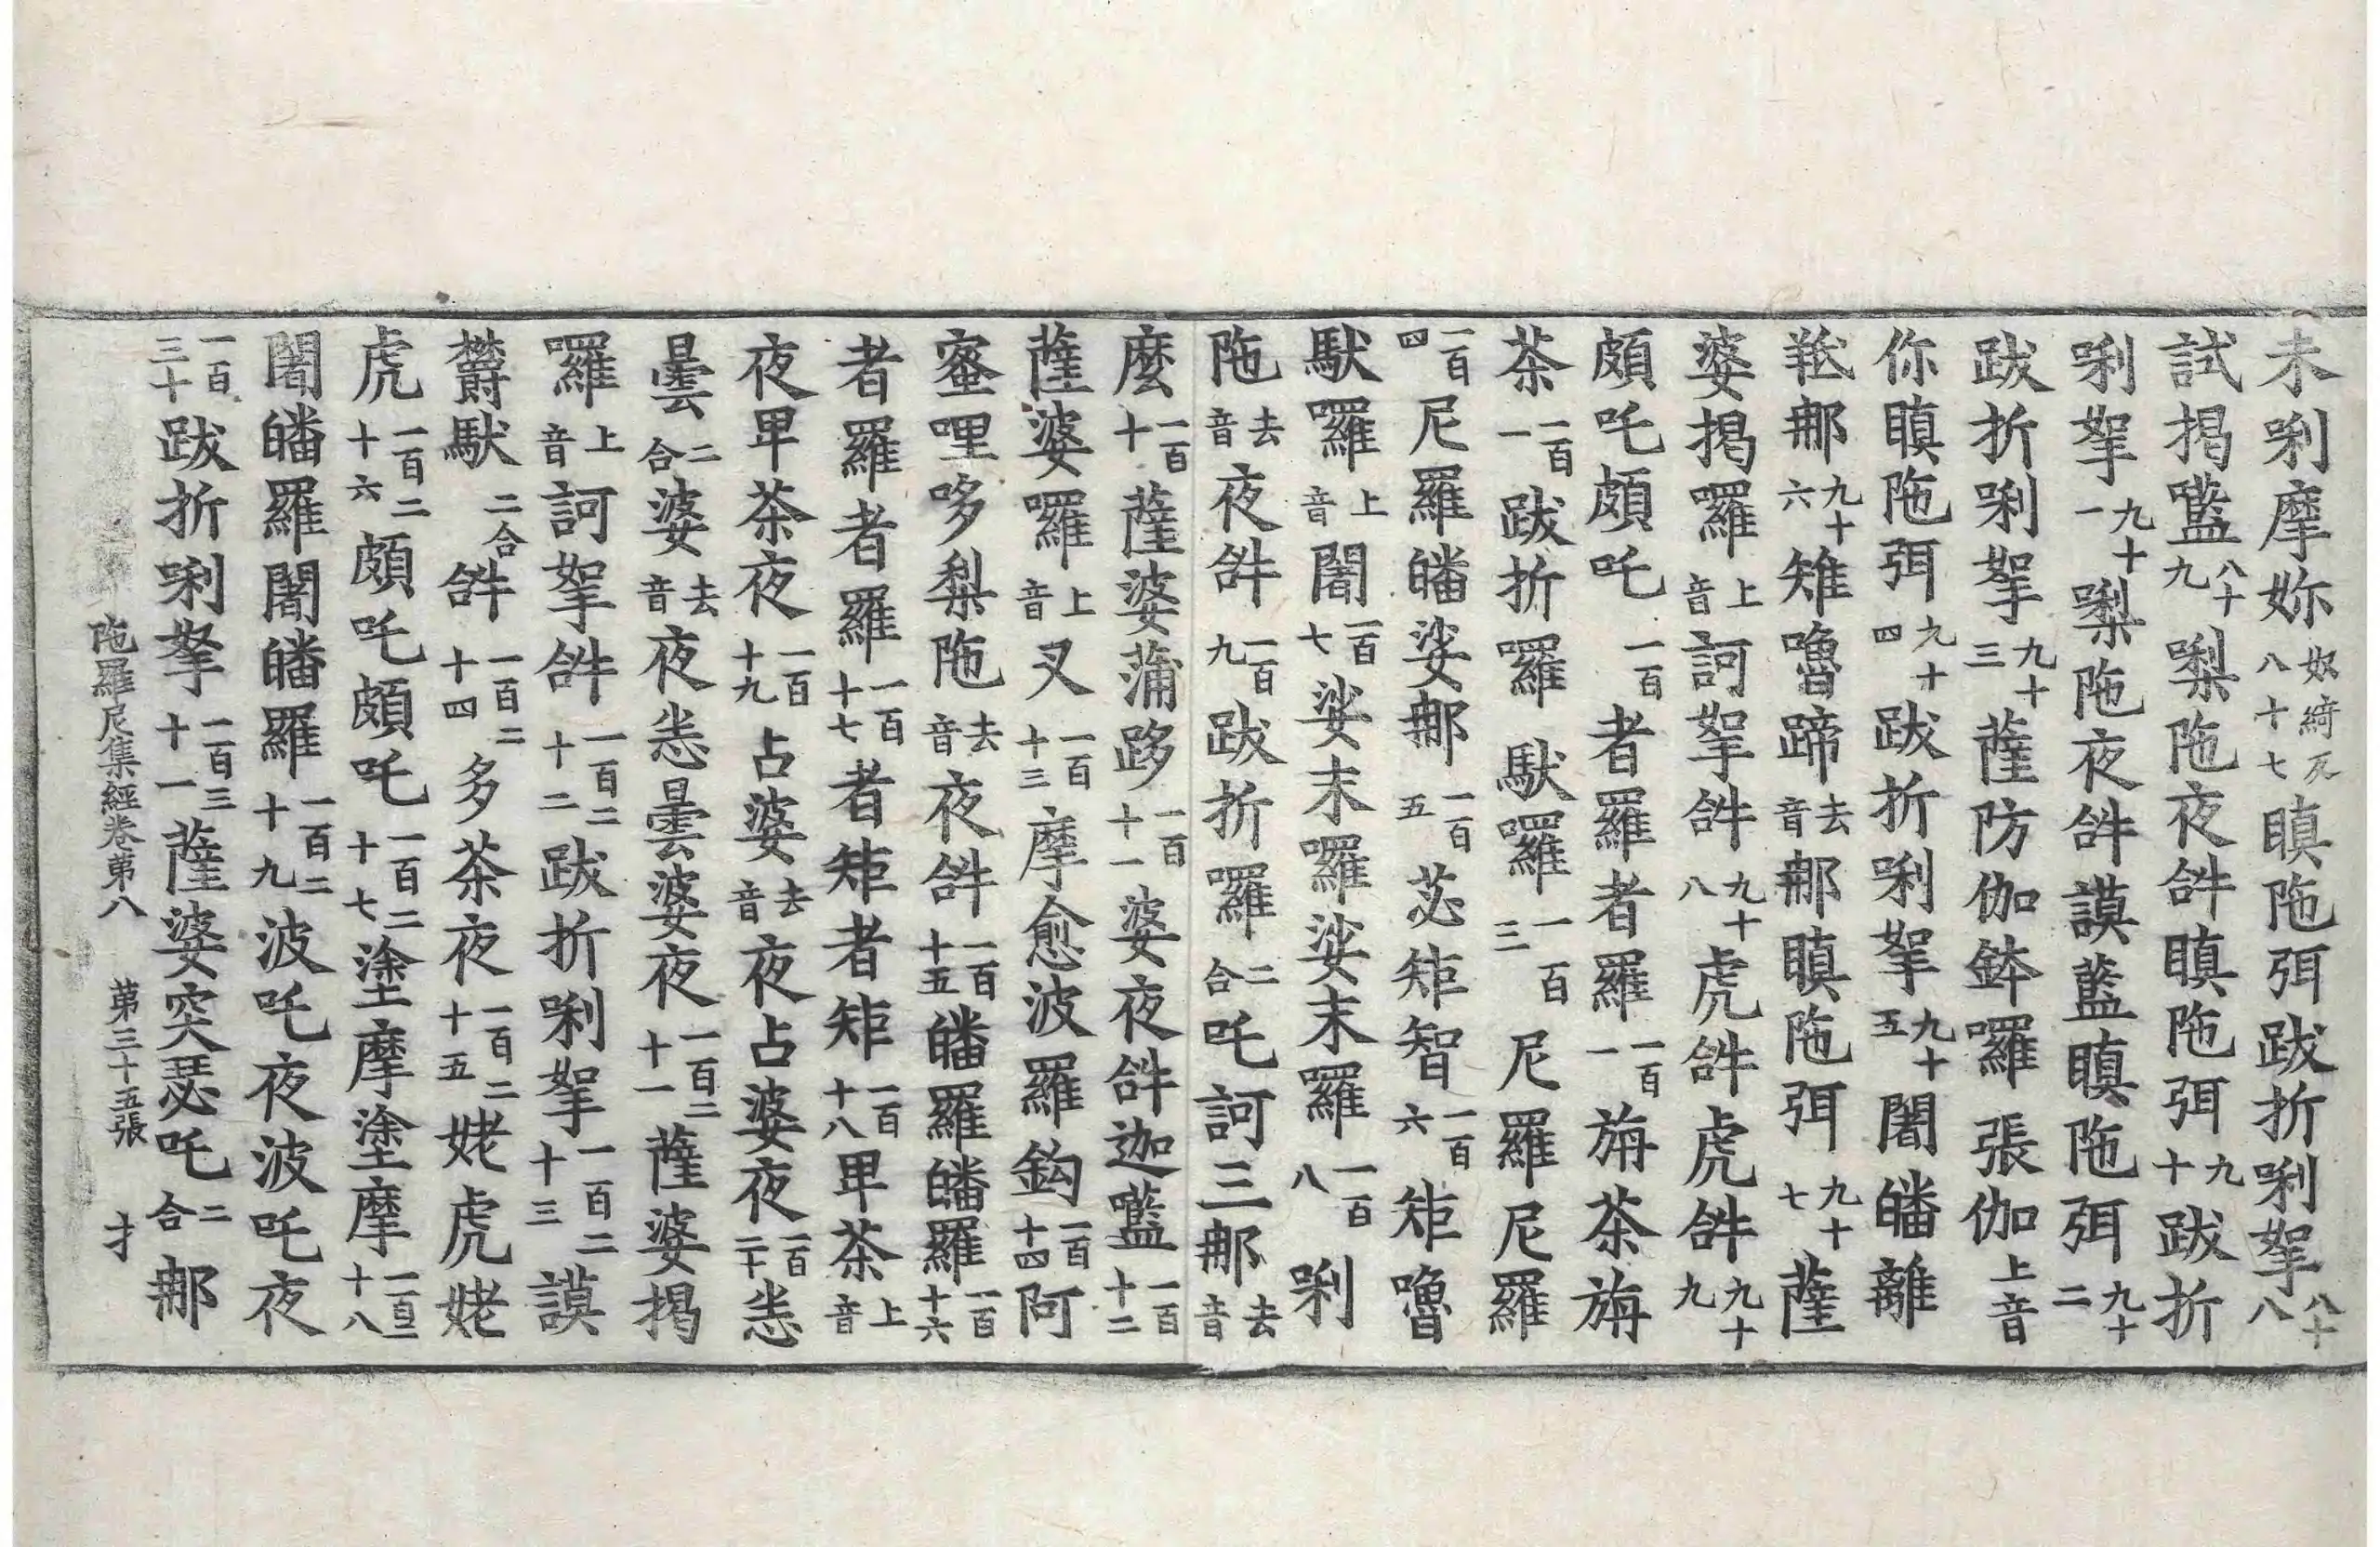 未唎摩妳奴綺反八十七瞋陁弭跋折唎拏八十八
試揭㘕八十九㗚陁夜𤙖瞋陁弭九十跋折
唎拏九十一㗚陁夜𤙖謨藍瞋陁弭九十二
跋折唎拏九十三薩防伽鉢囉張伽上音
你瞋陁弭九十四跋折唎拏九十五闍皤離
那九十六雉嚕蹄去音那瞋陁弭九十七薩
婆揭囉上音訶拏𤙖九十八虎𤙖虎𤙖九十九
頗吒頗吒一百者羅者羅一百一旃茶旃
茶一百一跋折囉馱囉一百三尼羅尼羅
一百四尼羅皤娑那一百五苾矩智一百六矩嚕
馱囉上音闍一百七娑末囉娑末羅一百八唎
陁去音夜𤙖一百九跋折囉二合吒訶三那去音
麼一百十薩婆蒲跢一百十一婆夜𤙖迦㘕一百十二
薩婆囉上音叉一百十三摩愈波羅鈎一百十四阿
蜜哩哆梨陁去音夜𤙖一百十五皤羅皤羅一百十六
者羅者羅一百十七者矩者矩一百十八畢茶上音
夜畢茶夜一百十九占婆去音夜占婆夜一百二十恙
曇二合婆去音夜恙曇婆夜一百二十一薩婆揭
囉上音訶拏𤙖一百二十二跋折唎拏一百二十三謨
欝馱二合𤙖一百二十四多茶夜一百二十五姥虎姥
虎一百二十六頗吒頗吒一百二十七塗摩塗摩一百二十八
闍皤羅闍皤羅一百二十九波吒夜波吒夜
一百三十跋折唎拏一百三十一薩婆突瑟吒二合那
陁羅尼集經卷第八 第三十五張 才